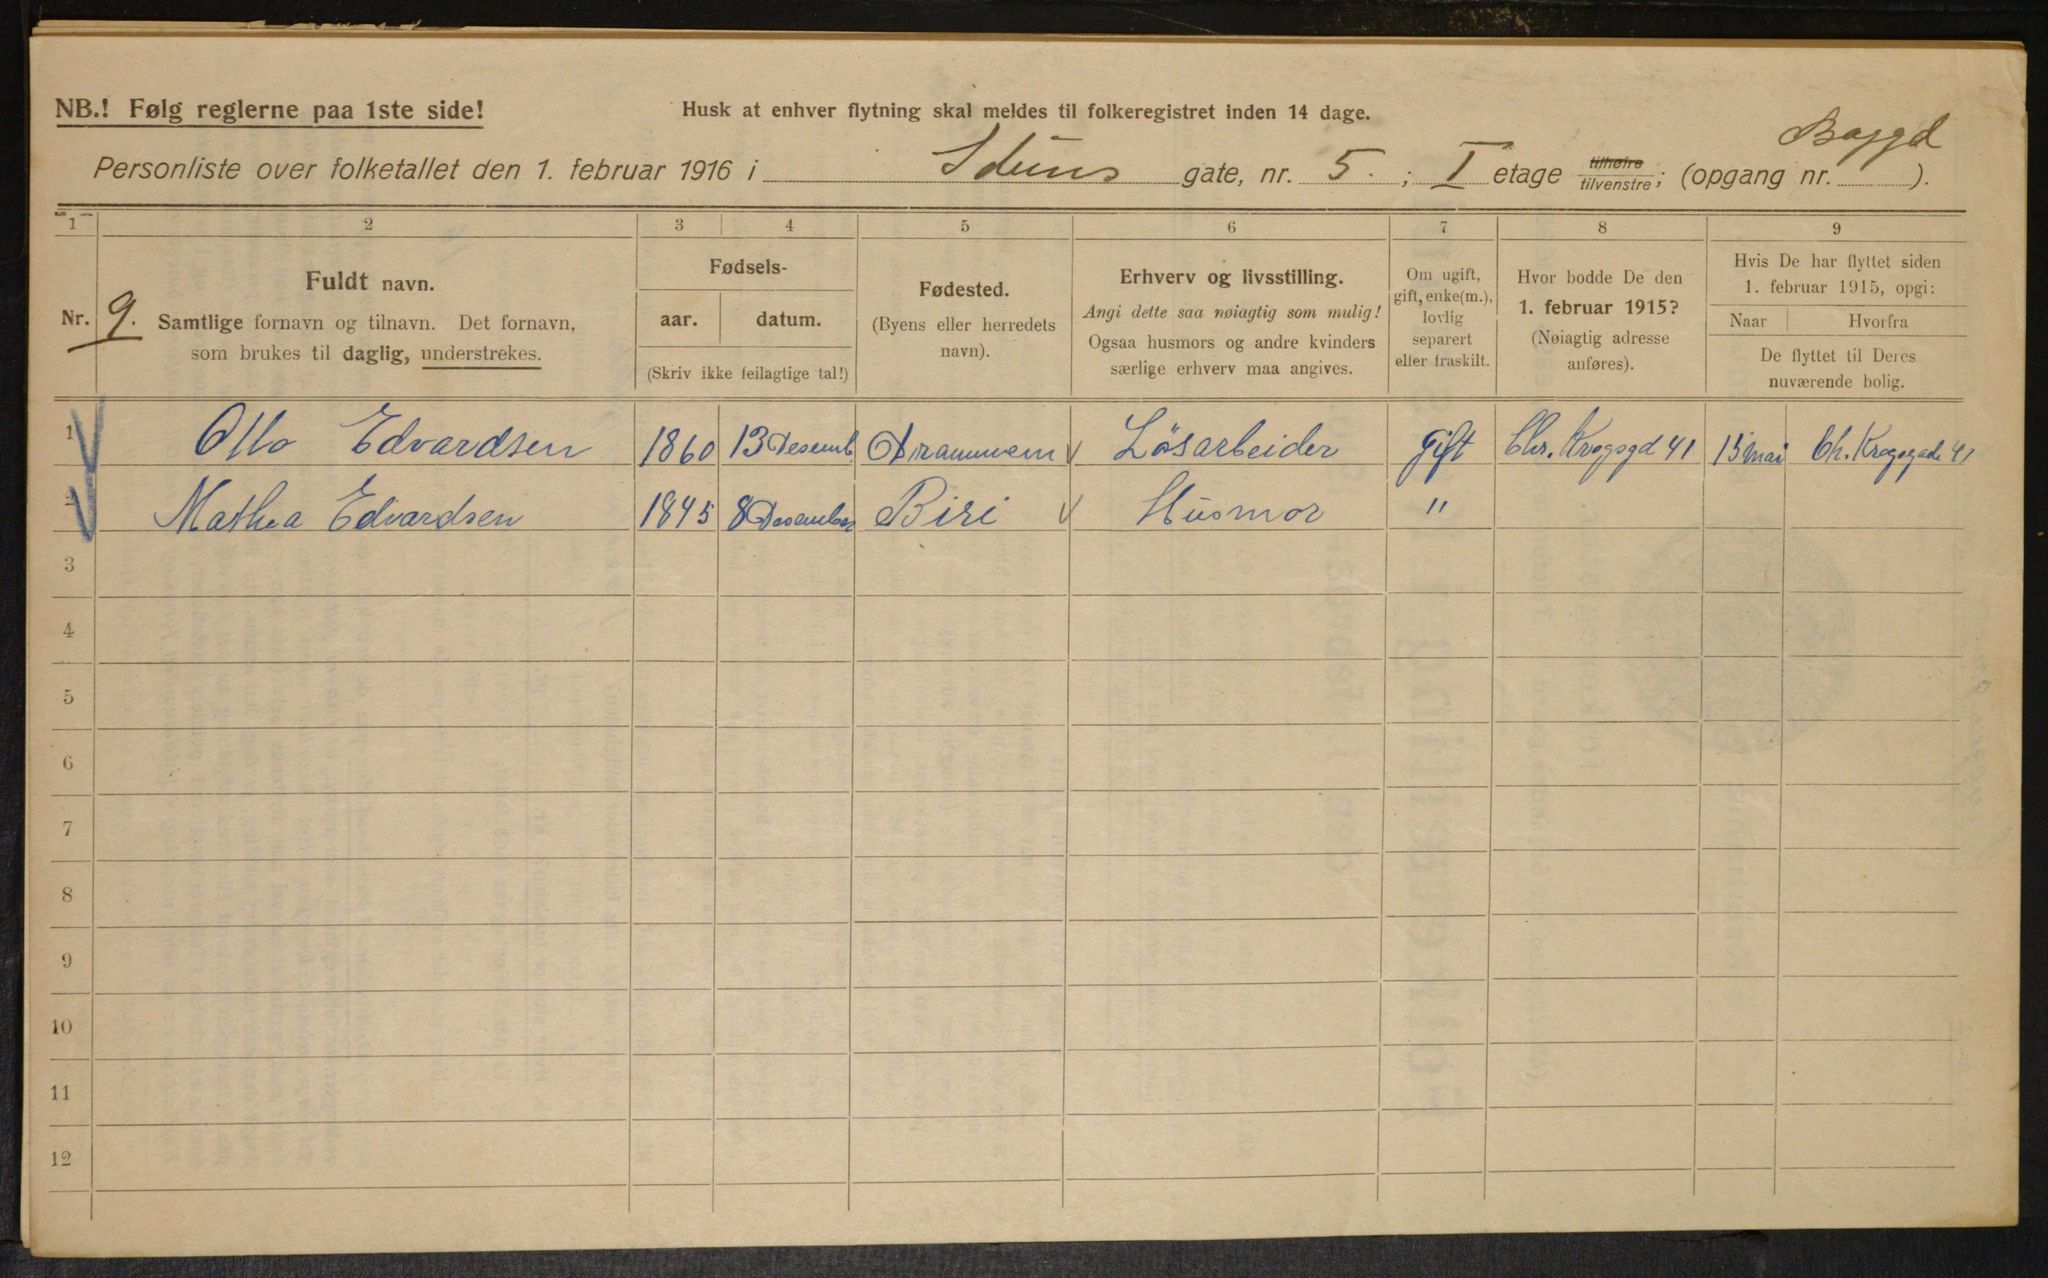 NB.! Følg reglerne paa 1ste side!
Husk at enhver flytning skal meldes til folkeregistret inden 14 dage.
Baggd
Personliste over folketallet den 1. februar 1916 i Iduns gate, nr. 5. ; I etage tilhøire tilvenstre; (opgang nr. ).
1 2 3 4 5 6 7 8 9
Nr. 9.
Fuldt navn.
Samtlige fornavn og tilnavn. Det fornavn,
som brukes til daglig, understrekes.
Fødsels-
aar. datum.
(Skriv ikke feilagtige tal!)
Fødested.
(Byens eller herredets
navn).
Erhverv og livsstilling.
Angi dette saa nøiagtig som mulig!
Ogsaa husmors og andre kvinders
særlige erhverv maa angives.
Om ugift,
gift, enke(m.),
lovlig
separert
eller fraskilt.
Hvor bodde De den
1. februar 1915?
(Nøiagtig adresse
anføres).
Hvis De har flyttet siden
1. februar 1915, opgi:
Naar Hvorfra
De flyttet til Deres
nuværende bolig.
1 Otto Edvardsen 1860 13 Desemb. Drammem Løsarbeider Gift Chr. Krogsgd 41 15 mai Ch. Krogsgade 41
2 Mathea Edvardsen 1845 8 Desember Biri Husmor "
3
4
5
6
7
8
9
10
11
12